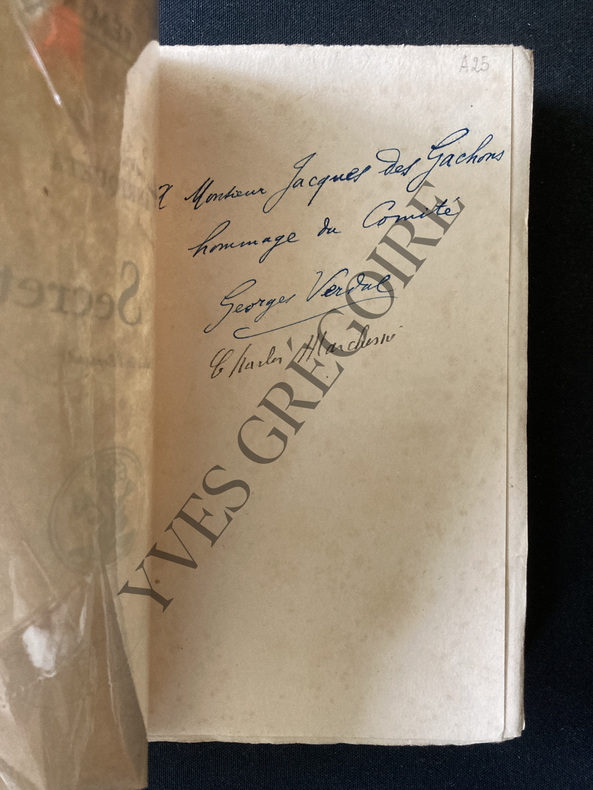 A25
A Monsieur Jacques des Gachons
hommage du Comité
Georges Verdal
Charles
YVES GRÉGOIRE
Secret